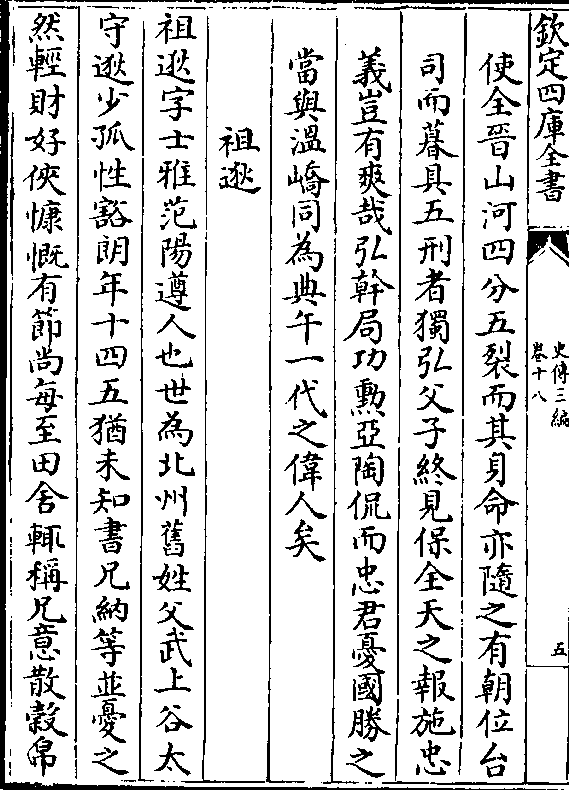 欽定四庫全書
史傳三編
卷十八
五
使全晉山河四分五裂而其身命亦隨之有朝位台
司而暮具五刑者獨弘父子終見保全天之報施忠
義豈有爽哉弘幹局功勲亞陶侃而忠君憂國勝之
當與溫嶠同為典午一代之偉人矣
祖逖
祖逖字士雅范陽遵人也世為北州舊姓父武上谷太
守逖少孤性豁朗年十四五猶未知書兄納等並憂之
然輕財好俠慷慨有節尚每至田舍輒稱兄意散穀帛